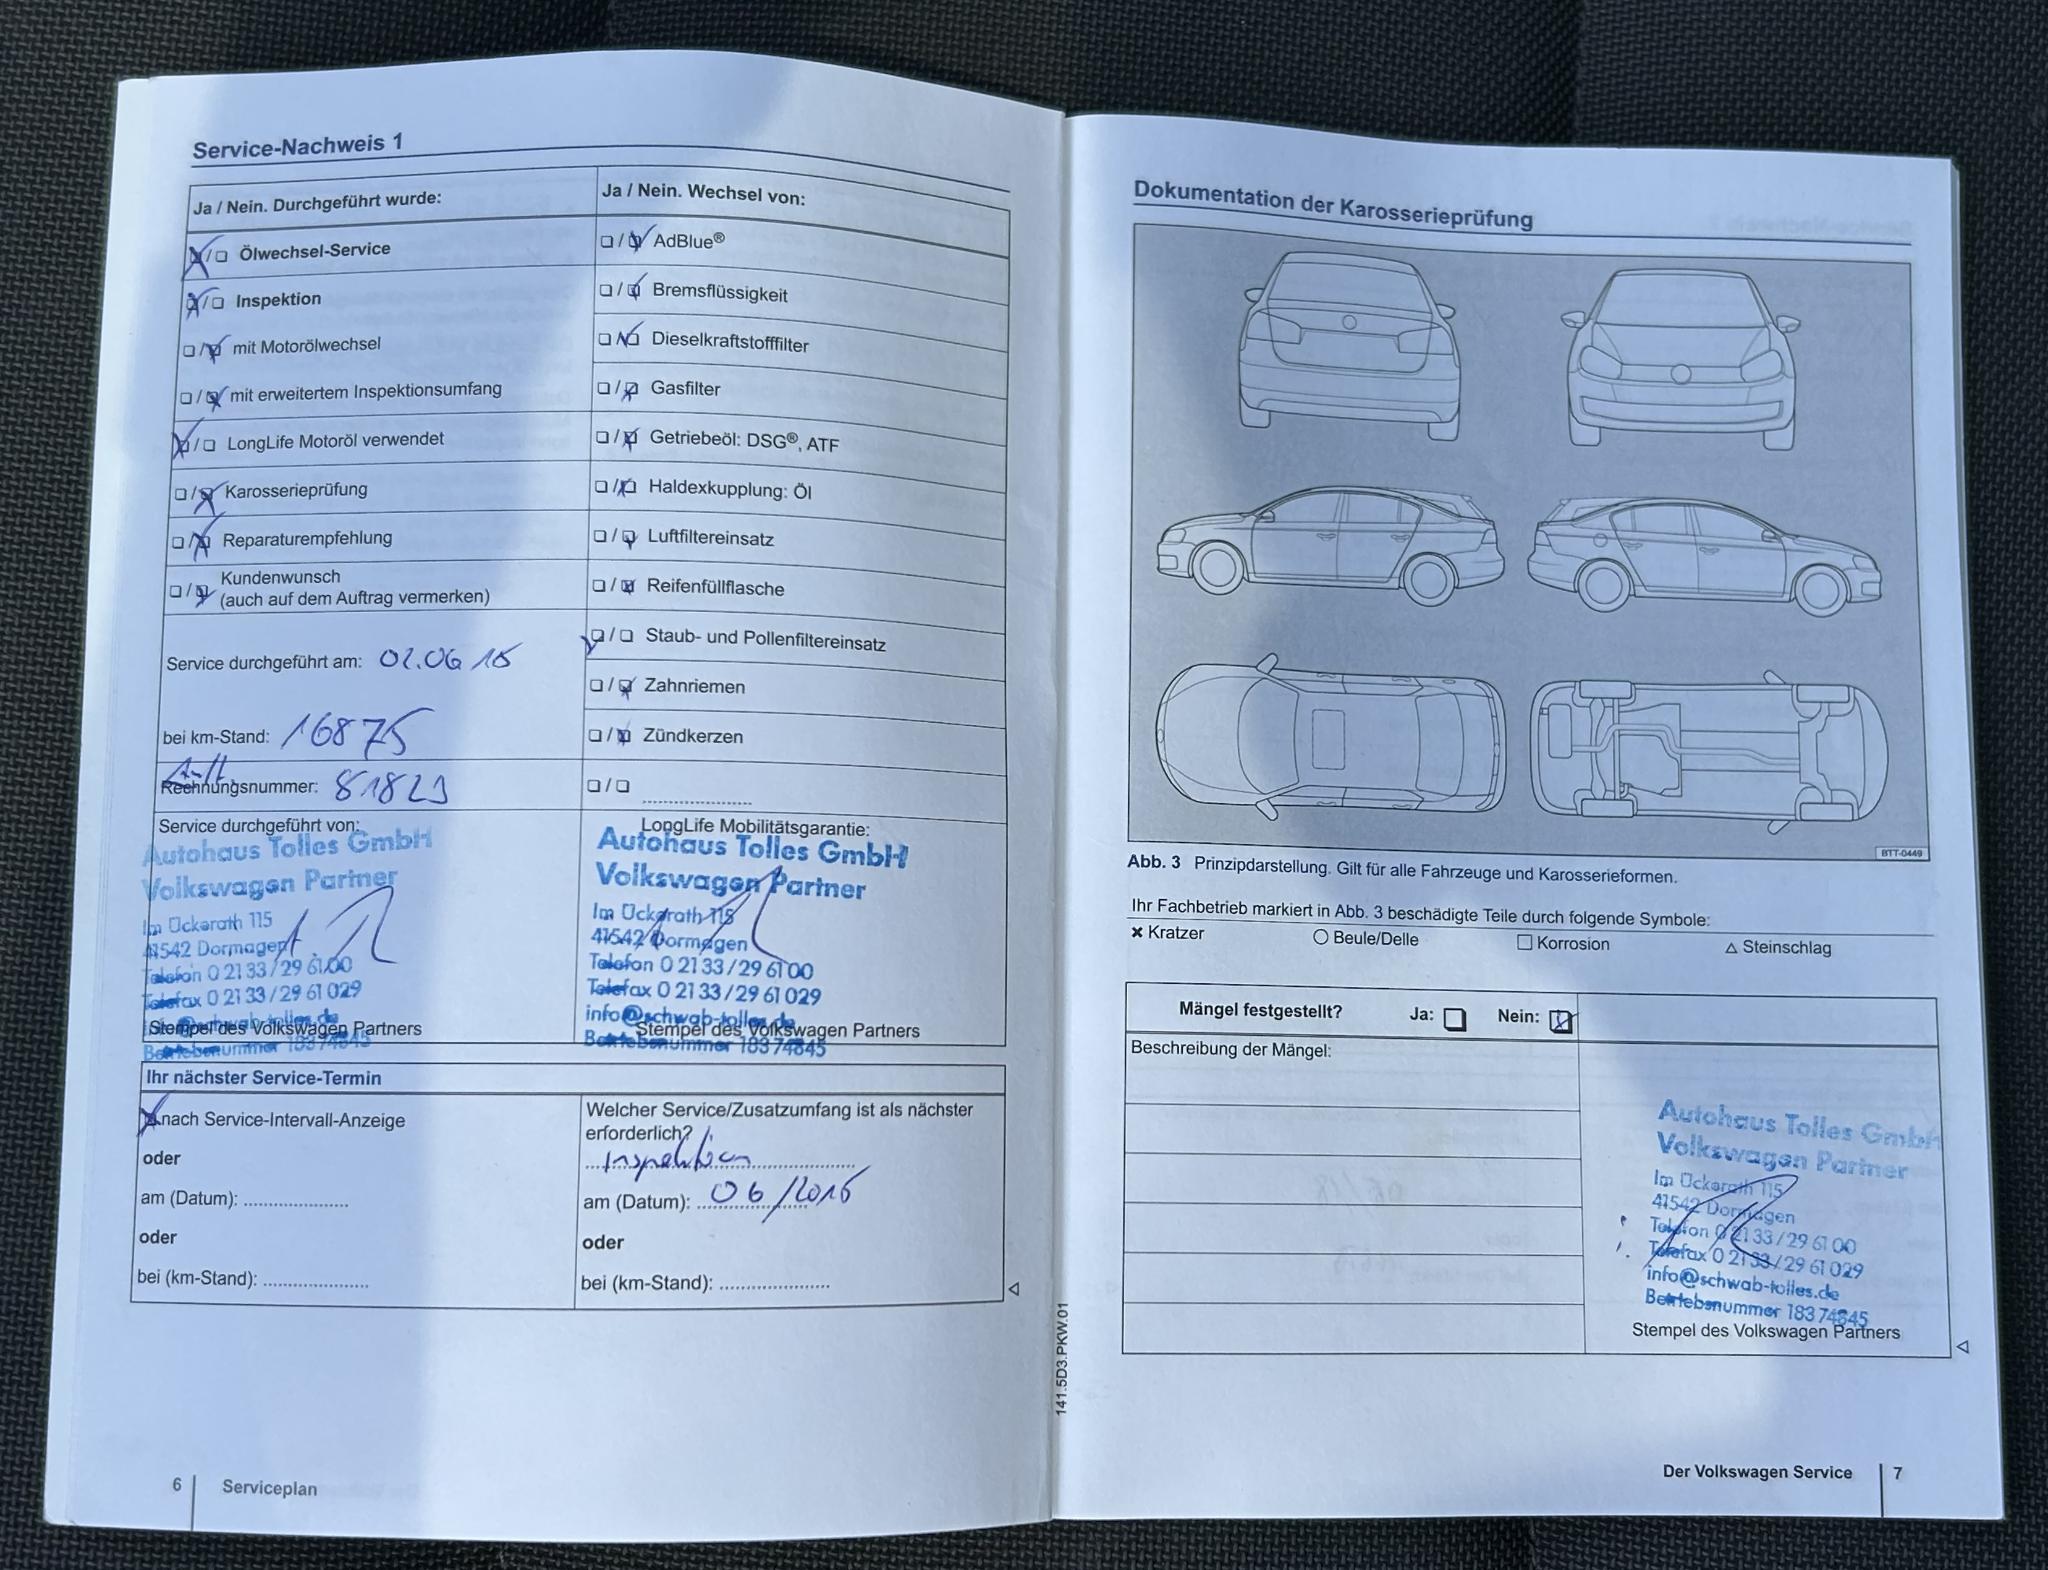 Service-Nachweis 1
Ja / Nein. Durchgeführt wurde:
Ölwechsel-Service
Inspektion
mit Motorölwechsel
mit erweitertem Inspektionsumfang
LongLife Motoröl verwendet
Karosserieprüfung
Reparaturempfehlung
Kundenwunsch
(auch auf dem Auftrag vermerken)
Service durchgeführt am: 02.06 15
bei km-Stand: 16875
Rechnungsnummer: 81823
Ja / Nein. Wechsel von:
AdBlue®
Bremsflüssigkeit
Dieselkraftstofffilter
Gasfilter
Getriebeöl: DSG®, ATF
Haldexkupplung: Öl
Luftfiltereinsatz
Reifenfüllflasche
Staub- und Pollenfiltereinsatz
Zahnriemen
Zündkerzen
Service durchgeführt von:
Autohaus Tolles GmbH
Volkswagen Partner
Im Ückerath 115
41542 Dormagen
Telefon 0 21 33 / 29 61 00
Telefax 0 21 33 / 29 61 029
info@schwab-tolles.de
Stempel des Volkswagen Partners
Betriebsnummer 183 74845
LongLife Mobilitätsgarantie:
Autohaus Tolles GmbH
Volkswagen Partner
Im Ückerath 115
41542 Dormagen
Telefon 0 21 33 / 29 61 00
Telefax 0 21 33 / 29 61 029
info@schwab-tolles.de
Stempel des Volkswagen Partners
Betriebsnummer 183 74845
Ihr nächster Service-Termin
nach Service-Intervall-Anzeige
oder
am (Datum):
oder
bei (km-Stand):
Welcher Service/Zusatzumfang ist als nächster
erforderlich?
Inspektion
am (Datum): 06/2016
oder
bei (km-Stand):
6 Serviceplan
141.5D3.PKW.01
Dokumentation der Karosserieprüfung
BTT-0449
Abb. 3 Prinzipdarstellung. Gilt für alle Fahrzeuge und Karosserieformen.
Ihr Fachbetrieb markiert in Abb. 3 beschädigte Teile durch folgende Symbole:
Kratzer Beule/Delle Korrosion Steinschlag
Mängel festgestellt? Ja: Nein:
Beschreibung der Mängel:
Autohaus Tolles GmbH
Volkswagen Partner
Im Ückerath 115
41542 Dormagen
Telefon 0 21 33 / 29 61 00
Telefax 0 21 33 / 29 61 029
info@schwab-tolles.de
Betriebsnummer 183 74845
Stempel des Volkswagen Partners
Der Volkswagen Service 7